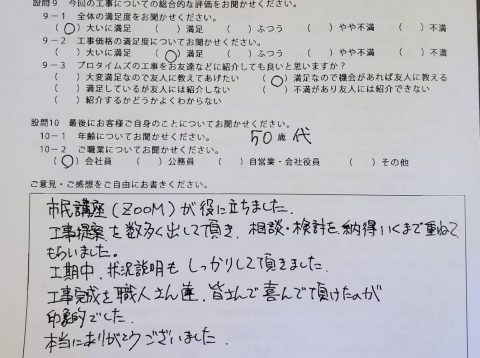 設問9 今回の工事についての総合的な評価をお聞かせください。
9-1 全体の満足度をお聞かせください。
(○)大いに満足 ( )満足 ( )ふつう ( )やや不満 ( )不満
9-2 工事価格の満足度についてお聞かせください。
( )大いに満足 (○)満足 ( )ふつう ( )やや不満 ( )不満
9-3 プロタイムズの工事をお友達などに紹介しても良いと思いますか?
( )大変満足なので友人に教えてあげたい (○)満足なので機会があれば友人に教える
( )満足しているが友人には紹介しない ( )不満があり友人には紹介できない
( )紹介するかどうかよくわからない
設問10 最後にお客様ご自身のことについてお聞かせください。
10-1 年齢についてお聞かせください。 50歳代
10-2 ご職業についてお聞かせください。
(○)会社員 ( )公務員 ( )自営業・会社役員 ( )その他
ご意見・ご感想をご自由にお書きください。
市民講座(ZOOM)が役に立ちました.
工事提案を数多く出して頂き、相談・検討を納得いくまで重ねて
もらいました。
工期中、状況説明もしっかりして頂きました.
工事完成を職人さん達、皆さんで喜んで頂けたのが
印象的でした.
本当にありがとうございました.